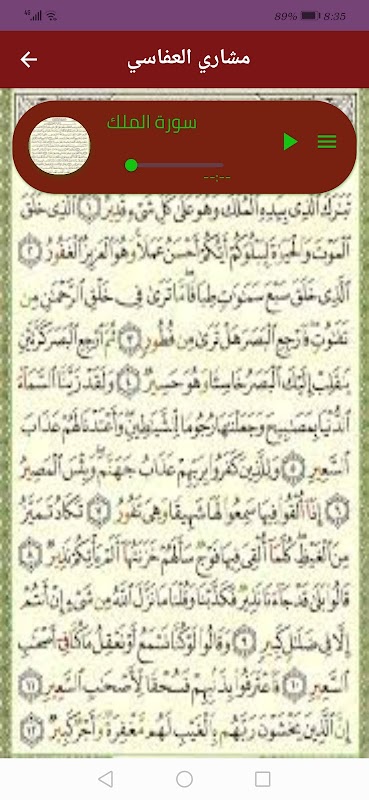 4G 89% 8:35
مشاري العفاسي
سورة الملك
--:--
تَبَٰرَكَ ٱلَّذِي بِيَدِهِ ٱلۡمُلۡكُ وَهُوَ عَلَىٰ كُلِّ شَيۡءٖ قَدِيرٌ ١ ٱلَّذِي خَلَقَ
ٱلۡمَوۡتَ وَٱلۡحَيَوٰةَ لِيَبۡلُوَكُمۡ أَيُّكُمۡ أَحۡسَنُ عَمَلٗاۚ وَهُوَ ٱلۡعَزِيزُ ٱلۡغَفُورُ ٢
ٱلَّذِي خَلَقَ سَبۡعَ سَمَٰوَٰتٖ طِبَاقٗاۖ مَّا تَرَىٰ فِي خَلۡقِ ٱلرَّحۡمَٰنِ مِن
تَفَٰوُتٖۖ فَٱرۡجِعِ ٱلۡبَصَرَ هَلۡ تَرَىٰ مِن فُطُورٖ ٣ ثُمَّ ٱرۡجِعِ ٱلۡبَصَرَ كَرَّتَيۡنِ
يَنقَلِبۡ إِلَيۡكَ ٱلۡبَصَرُ خَاسِئٗا وَهُوَ حَسِيرٞ ٤ وَلَقَدۡ زَيَّنَّا ٱلسَّمَآءَ
ٱلدُّنۡيَا بِمَصَٰبِيحَ وَجَعَلۡنَٰهَا رُجُومٗا لِّلشَّيَٰطِينِۖ وَأَعۡتَدۡنَا لَهُمۡ عَذَابَ
ٱلسَّعِيرِ ٥ وَلِلَّذِينَ كَفَرُواْ بِرَبِّهِمۡ عَذَابُ جَهَنَّمَۖ وَبِئۡسَ ٱلۡمَصِيرُ
٦ إِذَآ أُلۡقُواْ فِيهَا سَمِعُواْ لَهَا شَهِيقٗا وَهِيَ تَفُورُ ٧ تَكَادُ تَمَيَّزُ
مِنَ ٱلۡغَيۡظِۖ كُلَّمَآ أُلۡقِيَ فِيهَا فَوۡجٞ سَأَلَهُمۡ خَزَنَتُهَآ أَلَمۡ يَأۡتِكُمۡ نَذِيرٞ ٨
قَالُواْ بَلَىٰ قَدۡ جَآءَنَا نَذِيرٞ فَكَذَّبۡنَا وَقُلۡنَا مَا نَزَّلَ ٱللَّهُ مِن شَيۡءٍ إِنۡ أَنتُمۡ
إِلَّا فِي ضَلَٰلٖ كَبِيرٖ ٩ وَقَالُواْ لَوۡ كُنَّا نَسۡمَعُ أَوۡ نَعۡقِلُ مَا كُنَّا فِيٓ أَصۡحَٰبِ
ٱلسَّعِيرِ ١٠ فَٱعۡتَرَفُواْ بِذَنۢبِهِمۡ فَسُحۡقٗا لِّأَصۡحَٰبِ ٱلسَّعِيرِ ١١
إِنَّ ٱلَّذِينَ يَخۡشَوۡنَ رَبَّهُم بِٱلۡغَيۡبِ لَهُم مَّغۡفِرَةٞ وَأَجۡرٞ كَبِيرٞ ١٢